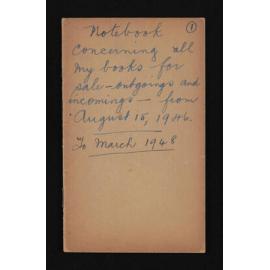 1
Notebook
concerning all
my books - for
sale - outgoings and
incomings - from
August 15, 1946.
To March 1948